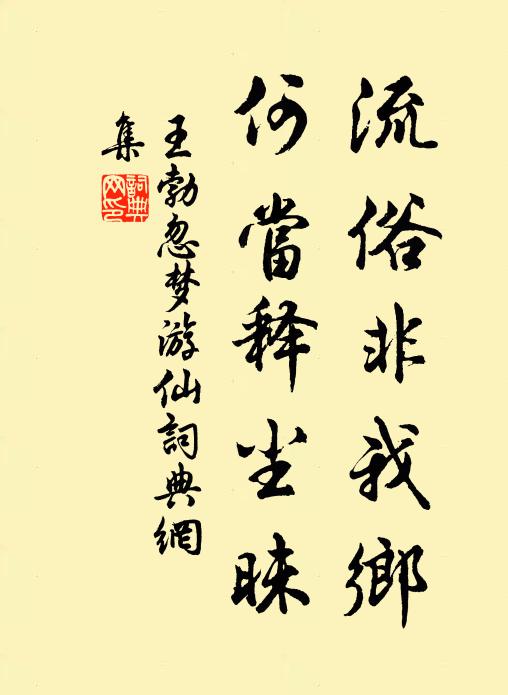 流俗非我鄉
何當释尘昧
王勃忽梦游仙詞典網
集
詞典網印